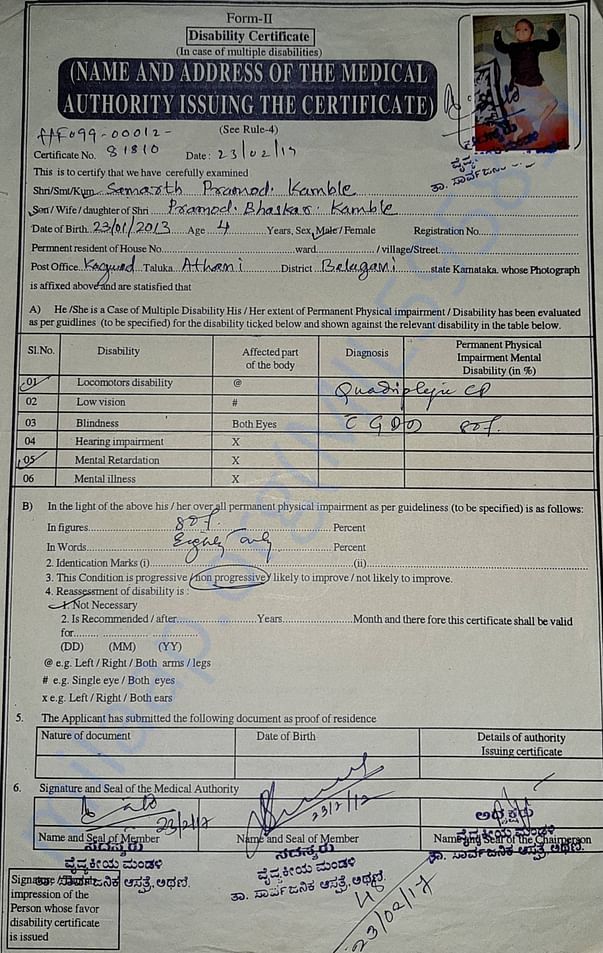 Form-II
Disability Certificate
(In case of multiple disabilities)
(NAME AND ADDRESS OF THE MEDICAL
AUTHORITY ISSUING THE CERTIFICATE)
(See Rule-4)
Certificate No. 81810 Date: 23/02/17
This is to certify that we have cerefully examined
Shri/Smt/Kum Samarth Pramod. Kamble
Son / Wife / daughter of Shri Pramod. Bhaskar. Kamble
Date of Birth 23/01/2013 Age 4 Years, Sex Male / Female Registration No.
Permnent resident of House No. ward. / village/Street.
Post Office Kagwad Taluka Athani District Belagavi state Karnataka. whose Photograph
is affixed above and are statisfied that
A) He /She is a Case of Multiple Disability His / Her extent of Permanent Physical impairment / Disability has been evaluated
as per guidlines (to be specified) for the disability ticked below and shown against the relevant disability in the table below.
Sl.No. Disability Affected part of the body Diagnosis Permanent Physical Impairment Mental Disability (in %)
01 Locomotors disability @ Quadriplegic CP
02 Low vision #
03 Blindness Both Eyes C GDD 80%
04 Hearing impairment X
05 Mental Retardation X
06 Mental illness X
B) In the light of the above his / her over all permanent physical impairment as per guideliness (to be specified) is as follows:
In figures 80% Percent
In Words Eighty only Percent
2. Identication Marks (i) (ii)
3. This Condition is progressive / non progressive / likely to improve / not likely to improve.
4. Reassessment of disability is :
1. Not Necessary
2. Is Recommended / after Years Month and there fore this certificate shall be valid
for
(DD) (MM) (YY)
@ e.g. Left / Right / Both arms / legs
# e.g. Single eye / Both eyes
x e.g. Left / Right / Both ears
5. The Applicant has submitted the following document as proof of residence
Nature of document Date of Birth Details of authority Issuing certificate
6. Signature and Seal of the Medical Authority
23/2/17 23/2/17 ಅಧ್ಯಕ್ಷರು
Name and Seal of Member Name and Seal of Member Name and Seal of the Chairperson
ಸದಸ್ಯರು ಸದಸ್ಯರು ವೈದ್ಯಕೀಯ ಮಂಡಳಿ
ವೈದ್ಯಕೀಯ ಮಂಡಳಿ ವೈದ್ಯಕೀಯ ಮಂಡಳಿ ತಾ. ಸಾರ್ವಜನಿಕ ಆಸ್ಪತ್ರೆ, ಅಥಣಿ.
ತಾ. ಸಾರ್ವಜನಿಕ ಆಸ್ಪತ್ರೆ, ಅಥಣಿ. ತಾ. ಸಾರ್ವಜನಿಕ ಆಸ್ಪತ್ರೆ, ಅಥಣಿ.
impression of the
Person whose favor
disability certificate
is issued
23/02/17